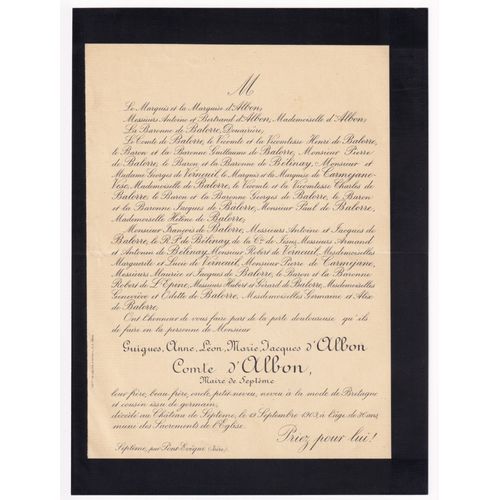 M
Le Marquis et la Marquise d'Albon,
Messieurs Antoine et Bertrand d'Albon, Mademoiselle d'Albon,
La Baronne de Balorre, Douairière,
Le Comte de Balorre, le Vicomte et la Vicomtesse Henri de Balorre,
le Baron et la Baronne Guillaume de Balorre, Monsieur Pierre
de Balorre, le Baron et la Baronne de Bélinay, Monsieur et
Madame Georges de Verneuil, le Marquis et la Marquise de Carmejane-
Vesc, Mademoiselle de Balorre, le Vicomte et la Vicomtesse Charles de
Balorre, le Baron et la Baronne Georges de Balorre, le Baron
et la Baronne Jacques de Balorre, Monsieur Paul de Balorre,
Mademoiselle Hélène de Balorre,
Monsieur François de Balorre, Messieurs Antoine et Jacques de
Balorre, le R. P. de Bélinay de la Cie de Jésus, Messieurs Armand
et Antonin de Bélinay, Monsieur Robert de Verneuil, Mesdemoiselles
Marguerite et Lucie de Verneuil, Monsieur Pierre de Carmejane,
Messieurs Maurice et Jacques de Balorre, le Baron et la Baronne
Robert de L'Epine, Messieurs Hubert et Gérard de Balorre, Mesdemoiselles
Geneviève et Odette de Balorre, Mesdemoiselles Germaine et Alix
de Balorre,
Ont l'honneur de vous faire part de la perte douloureuse qu'ils
de faire en la personne de Monsieur
Guigues, Anne, Léon, Marie, Jacques d'Albon
Comte d'Albon,
Maire de Septème
leur frère, beau-frère, oncle, petit-neveu, neveu à la mode de Bretagne
et cousin issu de germain,
décédé au Château de Septème, le 12 Septembre à l'âge de 30 ans,
muni des Sacrements de l'Eglise.
Priez pour lui!
Septème, par Pont-Evêque (Isère).